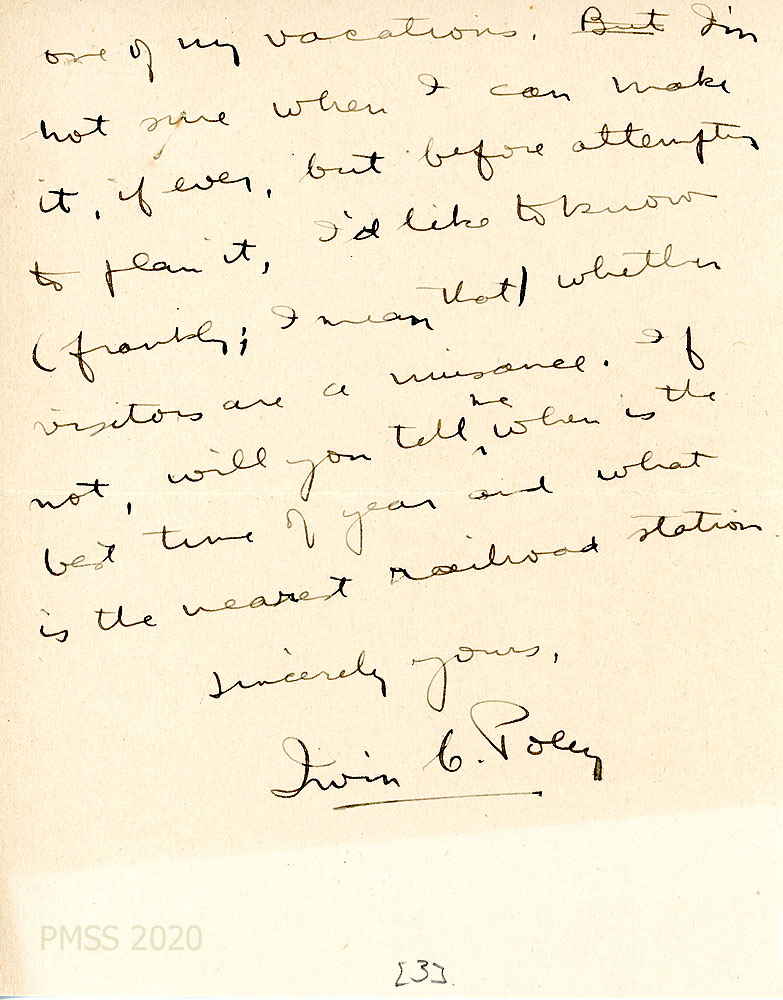 one of my vacations. But I'm
not sure when I can make
it, if ever, but before attempting
to plan it, I'd like to know
(frankly; I mean that) whether
visitors are a nuisance. If
not, will you tell me when is the
best time of year and what
is the nearest railroad station
Sincerely yours,
Irwin C. Poley
PMSS 2020
[3]